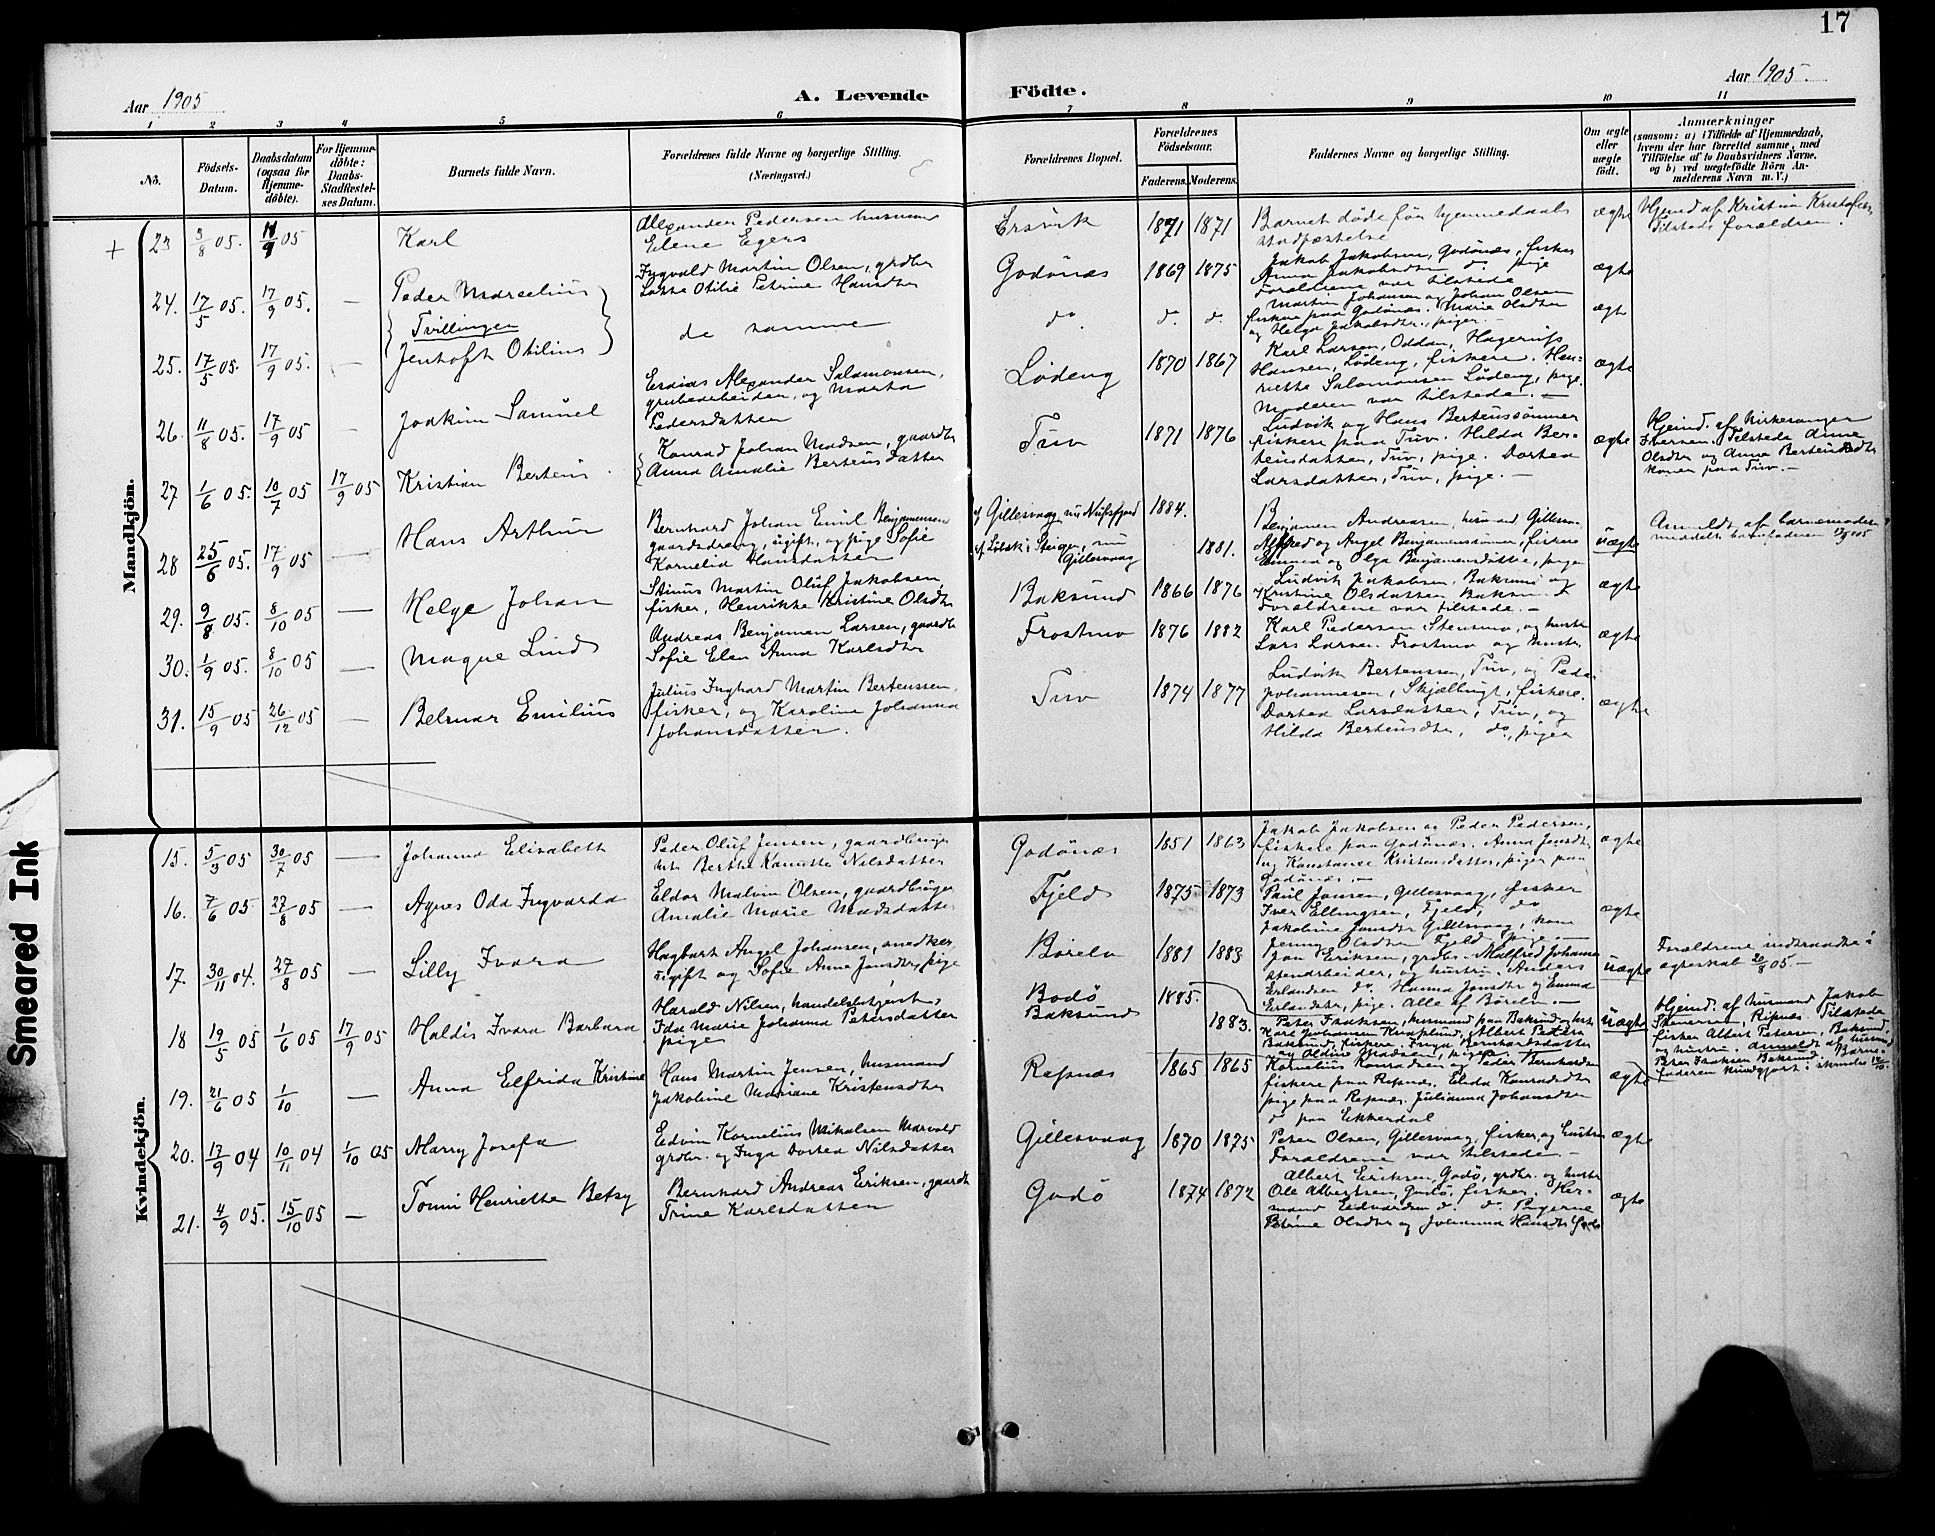 17
Aar 1905
A. Levende
Födte.
Aar 1905.
1 2 3 4 5 6 7 8 9 10 11
No.
Födsels-
Datum.
Daabsdatum
(ogsaa för
Hjemme-
döbte).
For Hjemme-
döbte:
Daabs-
Stadfæstel-
ses Datum.
Barnets fulde Navn.
Forældrenes fulde Navne og borgerlige Stilling.
(Næringsvei.)
Forældrenes Bopæl.
Forældrenes
Födselsaar.
Faderens. Moderens.
Faddernes Navne og borgerlige Stilling.
Om ægte
eller
uægte
födt.
Anmærkninger
(saasom: a) i Tilfælde af Hjemmedaab,
hvem der har forrettet samme, med
Tilföielse af to Daabsvidners Navne.
og b) ved uægtefödte Börn An-
melderens Navn m. V.)
Mandkjön.
+ 23 3/8 05. 05 Karl
Alexander Pedersen husmand
Elene Egers
Ersvik 1871 1871
Barnet döde för hjemmedaabs
stadfæstelse
ægte
Hjemd af Kristian Kristofers.
Tilstede forældrene.
24. 17/5 05. 17/9 05. — Peder Marcelius
Tvillinger
Ingvald Martin Olsen, grdbr
Lotte Otilie Petrine Hansdtr
Godönæs 1869 1875
Jakob Jakobsen, Godönæs, fisker
Anna Jakobsdtr do. pige
Forældrene var tilstede
ægte
25. 17/5 05. 17/9 05. — Jentoft Otilius
de samme
do. d. d.
Martin Johansen og Johan Olsen
fiskere paa Godönæs. Marie Olsdtr
og Helga Jakobsdtr, piger.—
ægte
26. 11/8 05. 17/9 05 — Joakim Samuel
Esaias Alexander Salamonsen,
grubearbeider, og Marta
Pedersdatter
Löding 1870 1867
Karl Larsen, Oddan, Hagerup
Hansen, Löding, fiskere. Hen-
riette Salamonsen Löding, pige.
Moderen var tilstede.—
ægte
27 1/6 05. 10/7 05 17/9 05 Kristian Berteus
Konrad Johan Madsen, gaardbr
Anna Amalie Berteusdatter
Tuv 1871 1876
Ludvik og Hans Berteussönner
fiskere paa Tuv. Hilda Ber-
teusdatter, Tuv, pige. Dortea
Larsdatter, Tuv, pige.—
ægte
Hjemd. af Kirkesanger
Iversen. Tilstede Anne
Olsdtr og Anna Berteusdtr
koner paa Tuv.—
28 25/6 05. 17/9 05 — Hans Arthur
Bernhard Johan Emil Benjaminsen
gaardsdreng, ugift, og pige Sofie
Kornelia Hansdatter
Gillesvaag, nu
Steigen, nu
Gillesvaag
1884.
1881.
Benjamin Andreassen, husmand Gillesv.
Alfred og Angel Benjaminsönner, fiskere
Emma og Olga Benjaminsdatter, piger
uægte
Anmeldt af barnemoder
meddelt barnefaderen
29. 9/8 05. 8/10 05 — Helge Johan
Stinus Martin Oluf Jakobsen,
fisker, Henrikke Kristine Olsdtr
Baksund 1866 1876
Ludvik Jakobsen, Baksund og
Kristine Olsdatter Baksund
Forældrene var tilstede.—
ægte
30. 1/9 05. 8/10 05 — Magne Lind
Andreas Benjamin Larsen, gaardb
Sofie Elen Anna Karlsdtr
Frostmo 1876 1882
Karl Pedersen Stensmo, og hustr
Lars Larsen Frostmo og hustr.
ægte
31. 15/9 05 26/12 05 — Belmar Emilius
Julius Inghard Martin Berteussen,
fisker, og Karoline Johanna
Johansdatter.
Tuv 1874 1877
Ludvik Berteussen, Tuv, og Peder
Johannesen, Skjælbugt, fiskere.
Dortea Larsdatter, Tuv, og
Hilda Berteusdtr, do, piger
ægte
Kvindekjön.
15. 5/3 05 30/7 05 — Johanna Elisabeth
Peder Oluf Jensen, gaardbruger
Berthe Kanutte Nilsdatter
Godönæs 1851 1863
Jakob Jakobsen og Peder Pedersen,
fiskere paa Godönæs. Anna Jonsdtr
og Konstance Kristensdatter, piger paa
Godönæs.—
ægte
16. 7/6 05 27/8 05 — Agnes Oda Ingvarda
Eldor Malvin Olsen, gaardbruger
Amalie Marie Madsdatter
Fjeld 1875 1873
Paul Jonsen, Gillesvaag, fisker
Iver Ellingsen, Fjeld, do
Jakobine Jonsdtr Gillesvaag, kone
Jenny Olsdtr Fjeld pige.—
ægte
17. 30/11 04. 27/8 05 — Lilly Ivara
Hagbart Angel Johansen, snedker
ugift og Sofie Anne Jonsdtr, pige
Börelv 1881 1883
Jon Eriksen, grdbr. Malfred Johans
stenarbeider, og hustru. Anders
Erlandsen do. Hanna Jonsdtr og Emma
Erlandsdtr, pige. Alle af Börelv.—
uægte
Forældrene indtraadte i
ægteskab 20/8 05.—
18 19/5 05 1/6 05 17/9 05 Haldis Ivara Barbara
Harald Nilsen, handelsbetjent,
Ida Marie Johanna Petersdatter
pige
Bodö
Baksund
1885.
1883.
Peter Isaksen, husmand paa Baksund og hustr.
Karl Johansen Kvaplund, Albert Peters
Baksund, fiskere, Inga Bernhardsdatter
og Oldine Madsen, piger
uægte
Hjemd. af husmand Jakob
Stenersen, Ripnes. Tilstede
fisker Albert Petersen, Baksund
og hustru. Anmeldt af husmd
Peter Isaksen Baksund. Barne-
faderen kundgjort i skrivelse
19. 21/6 05 1/10 — Anna Elfrida Kristine
Hans Martin Jensen, husmand
Jakobine Mariane Kristensdtr
Ripnæs 1865 1865
Kornelius Konradsen og Peder Bernhardsen
fiskere paa Ripnæs. Elida Konradsdtr
pige paa Ripnæs. Julianna Johansdtr
do paa Ekkerdal
ægte
20. 17/9 04 10/11 04 1/10 05 Marry Josefa
Edvin Kornelius Mikalsen Marvold
grdbr. og Inga Dortea Nilsdatter
Gillesvaag 1870 1875
Peter Olsen, Gillesvaag, fisker, og hustru
Forældrene var tilstede.—
ægte
21. 4/9 05. 15/10 05 — Tonni Henriette Betsy
Bernhard Andreas Eriksen, gaardb
Trine Karlsdatter
Godö 1874 1872
Albert Eriksen, Godö, grdbr. og hustr
Ole Albertsen, Godö, fisker. Her-
mand Edvardsen d. d. Pigerne
Petrine Olsdtr og Johanna Hansdtr Godö
ægte
Smeared Ink